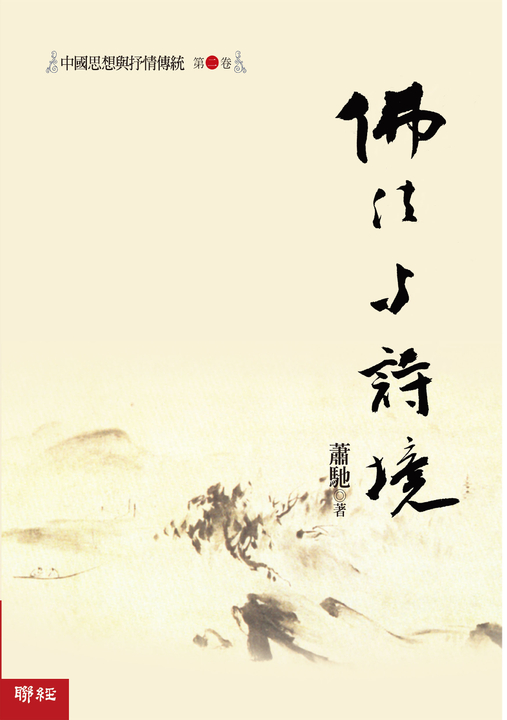 中國思想與抒情傳統 第二卷
佛法与詩境
蕭馳◎著
聯經